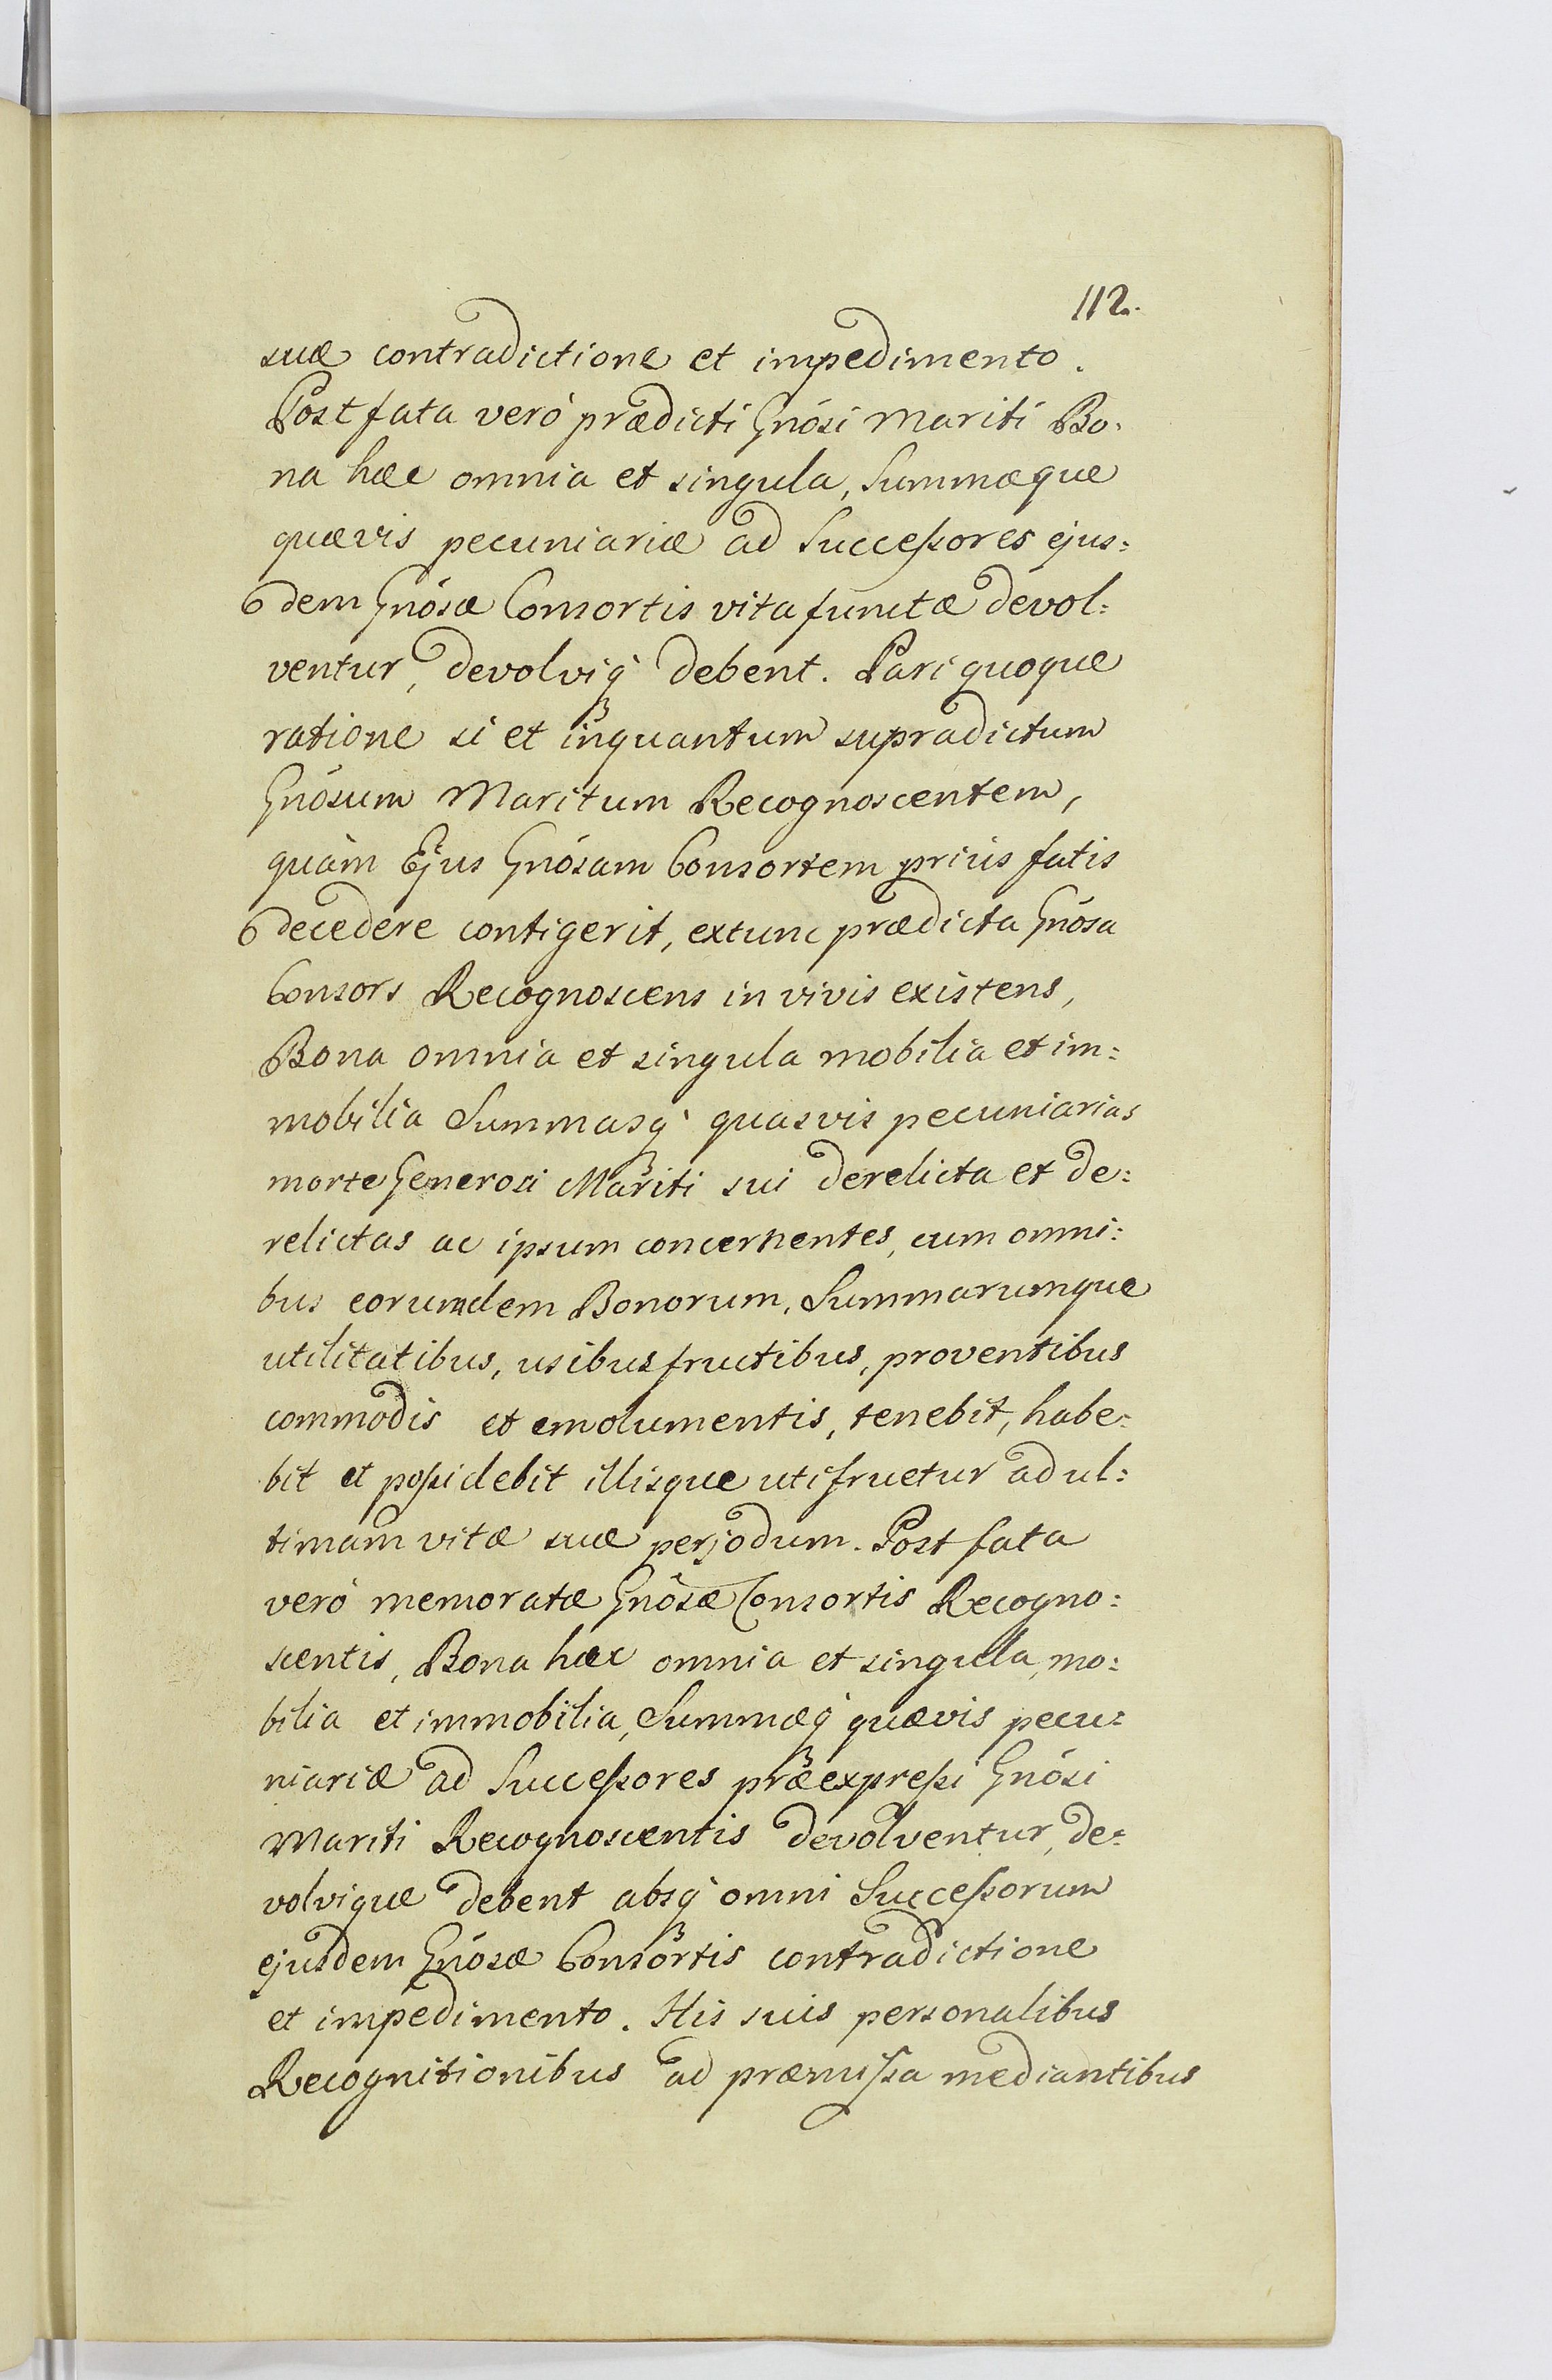 112.
suæ contradictione et impedimento.
Post fata veró prædicti Gnósi Mariti Bo:
na hæc omnia et singula, Summæque
quævis pecuniariæ ad Succeßores ejus:
dem Gnósæ Consortis vita functæ devol:
ventur, devolviq́ꝫ debent. Pari quoque
ratione si et inquantum supradictum
Gnósum Maritum Recognoscentem,
quàm Ejus Gnósam Consortem priús fatis
decedere contigerit, extunc prædicta Gnósa
Consors Recognoscens in vivis existens,
Bona omnia et singula mobilia et im:
mobilia Summasq́ꝫ quasvis pecuniarias
morte Generosi Mariti sui derelicta et de:
relictas ac ipsum concernentes, cum omni:
bus eorumdem Bonorum, Summarumque
utilitatibus, usibusfructibus, proventibus
commodis et emolumentis, tenebit, habe:
bit et poßidebit illisque utifruetur ad ul:
timam vitæ suæ perjodum. Post fata
veró memoratæ Gnósæ Consortis Recogno:
scentis, Bona hæc omnia et singula, mo:
bilia et immobilia, Summæq́ꝫ quævis pecu:
niariæ ad Succeßores præexpreßi Gnósi
Mariti Recognoscentis devolventur, de:
volvique debent absq́ꝫ omni Succeßorum
ejusdem Gnósæ Consortis contradictione
et impedimento. His suis personalibus
Recognitionibus ad præmißa mediantibus